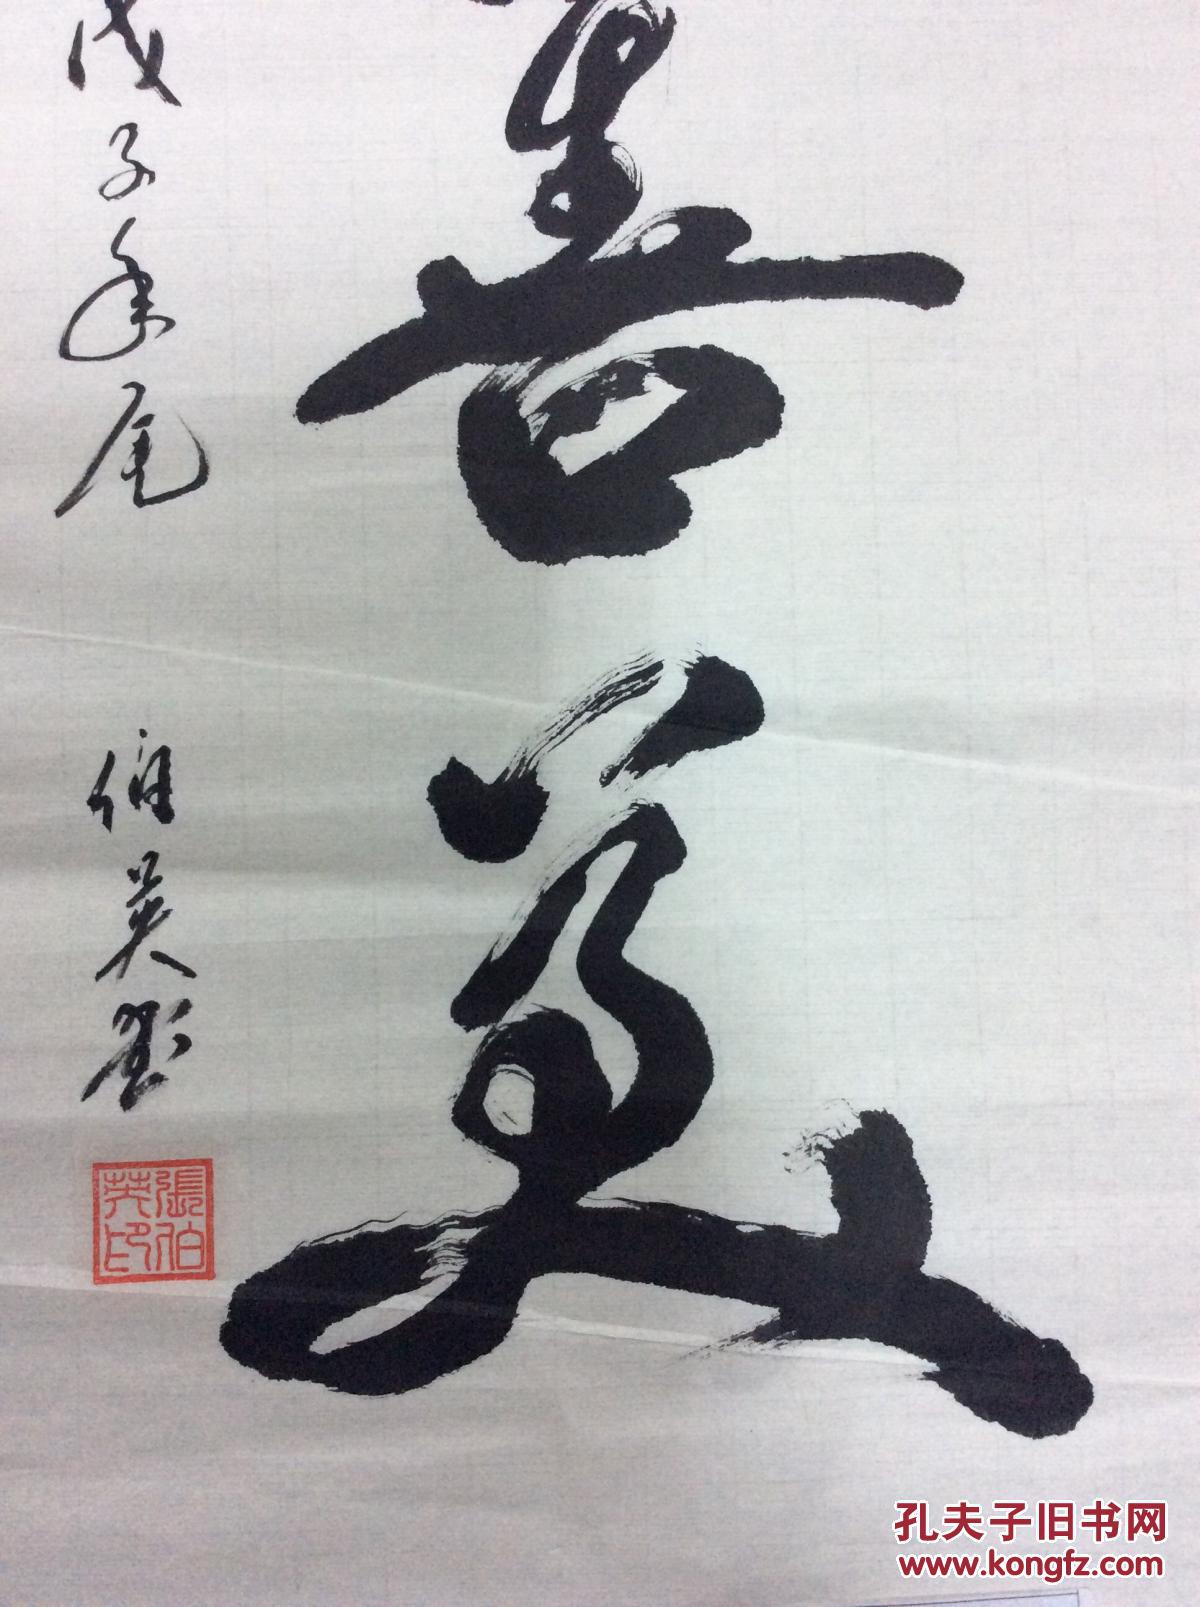 善美
戊子年尾
伯英書
張伯
英印
孔夫子旧书网
www.kongfz.com